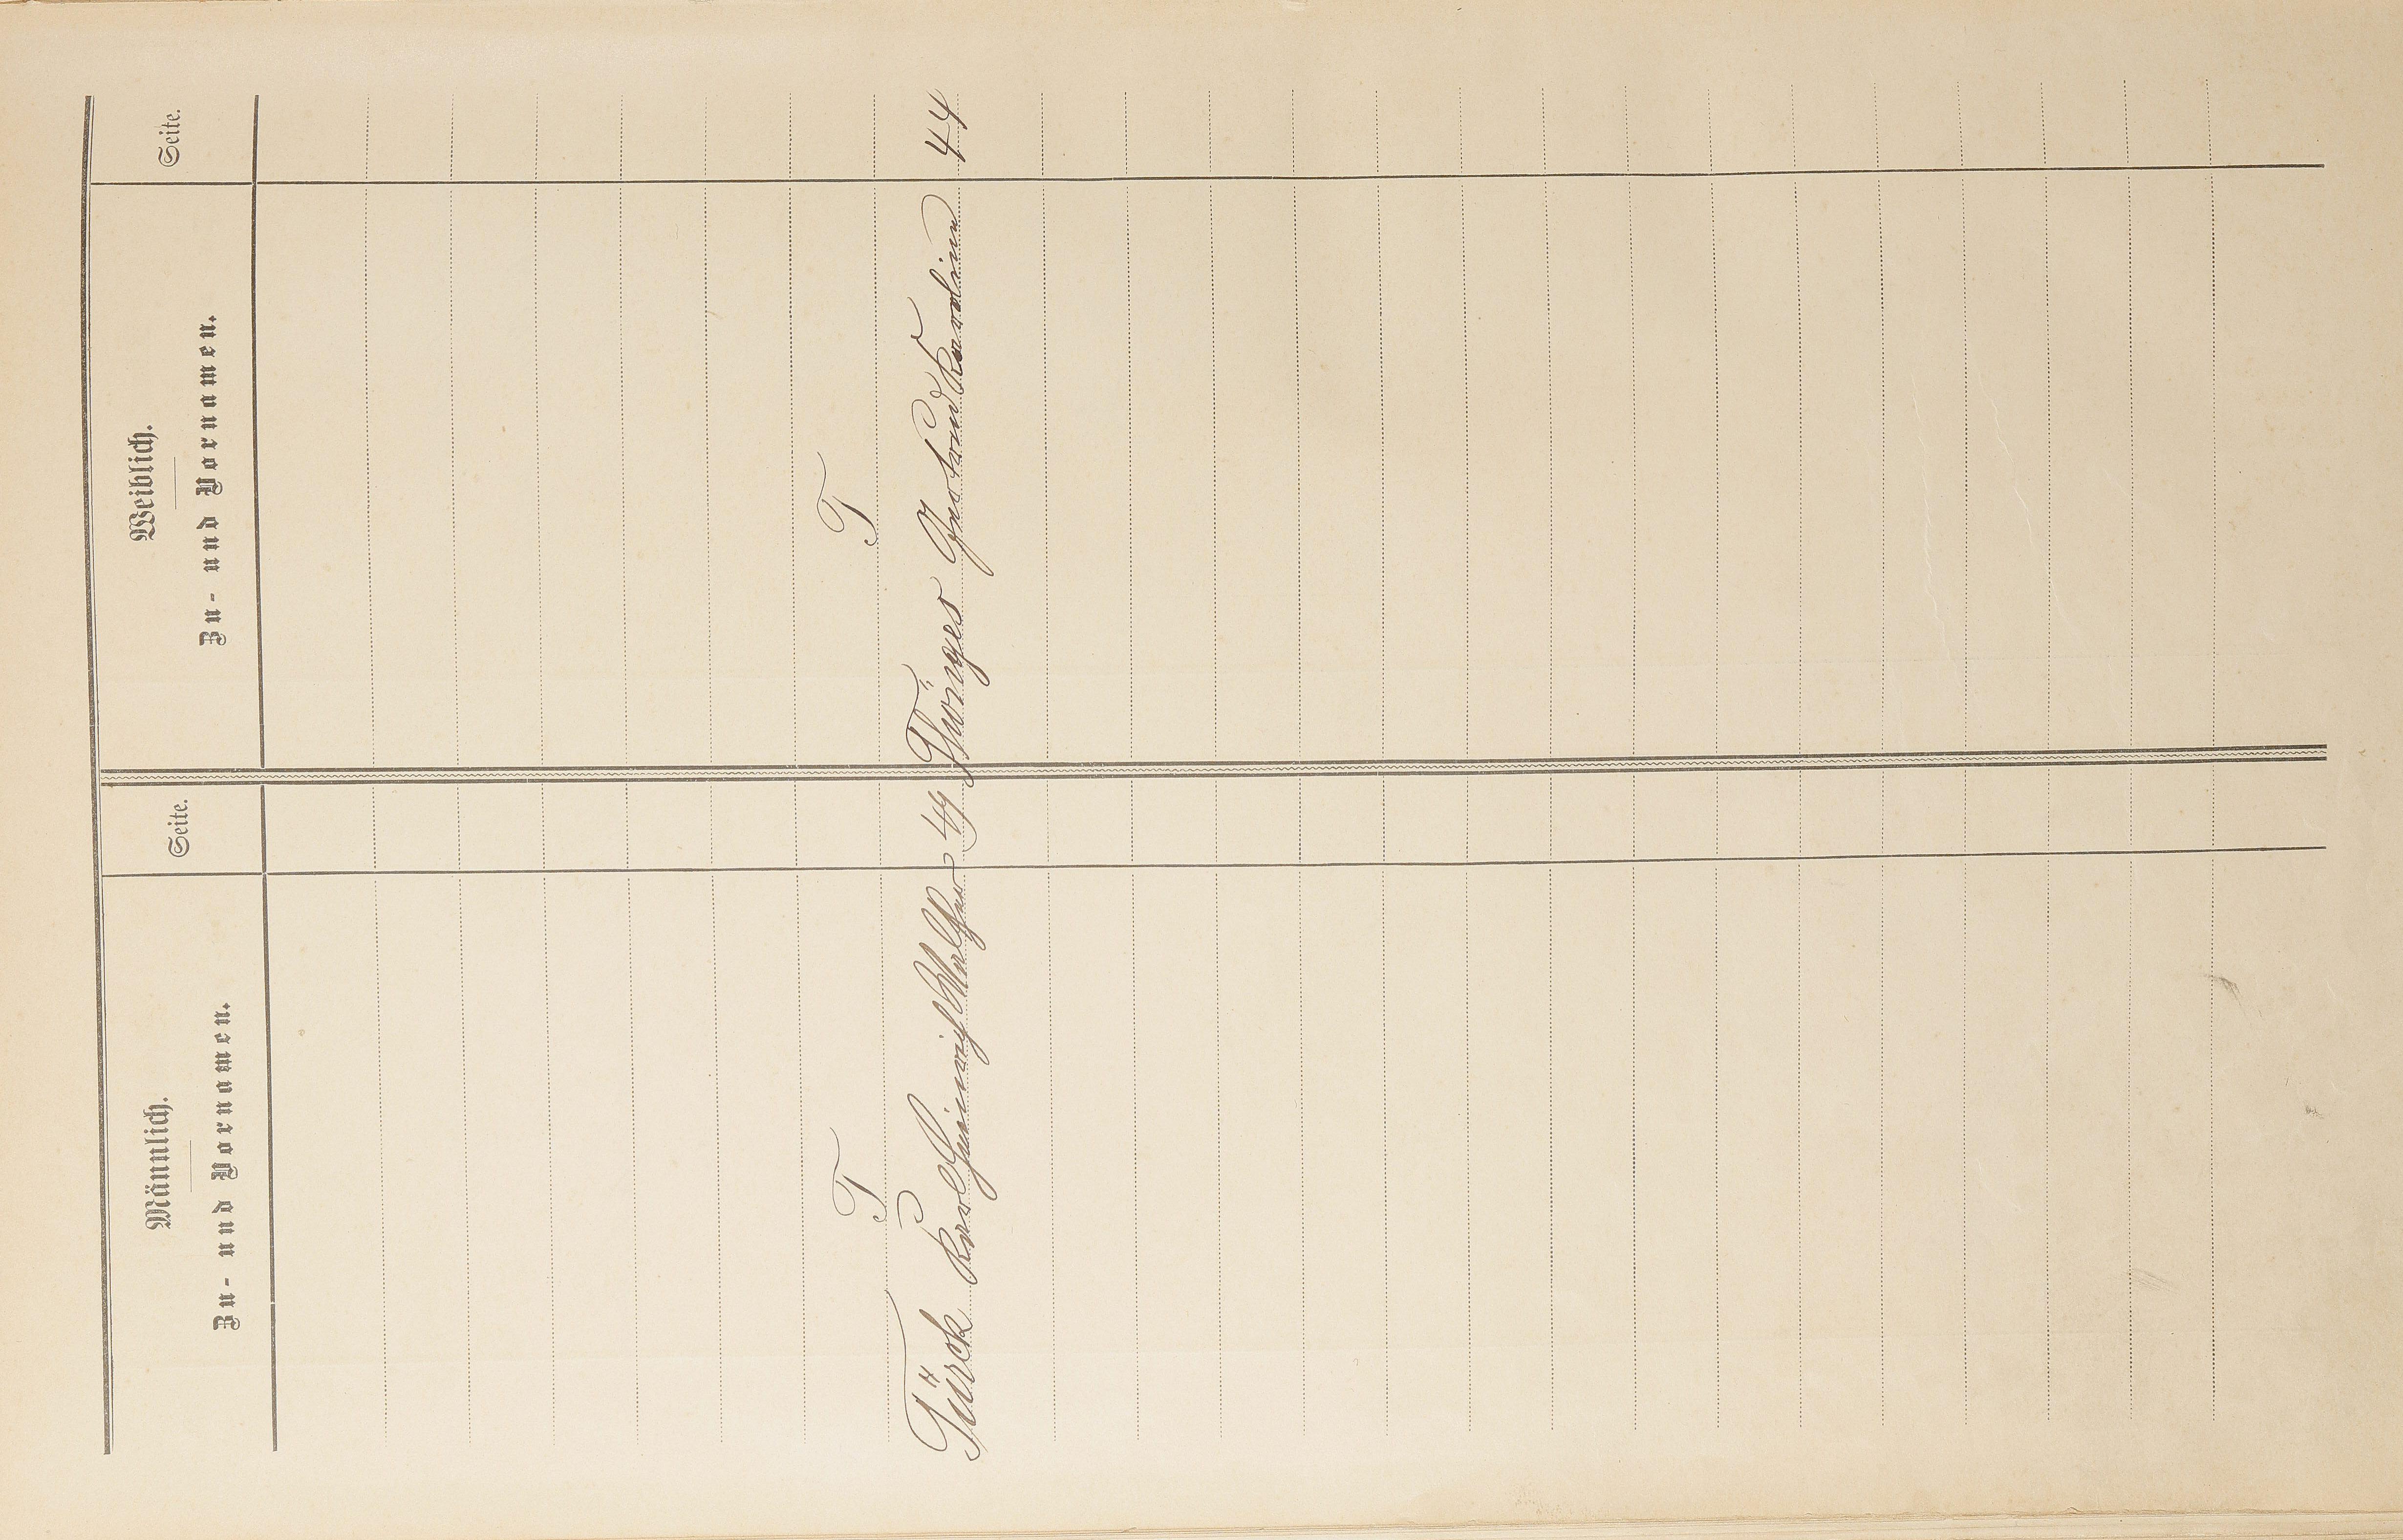 Männlich.
Zu- und Vornamen.
Seite.
Weiblich.
Zu- und Vornamen.
Seite.
T
T
Türck Karl Heinrich Walther 49
Thönges Gertrud Karoline 44